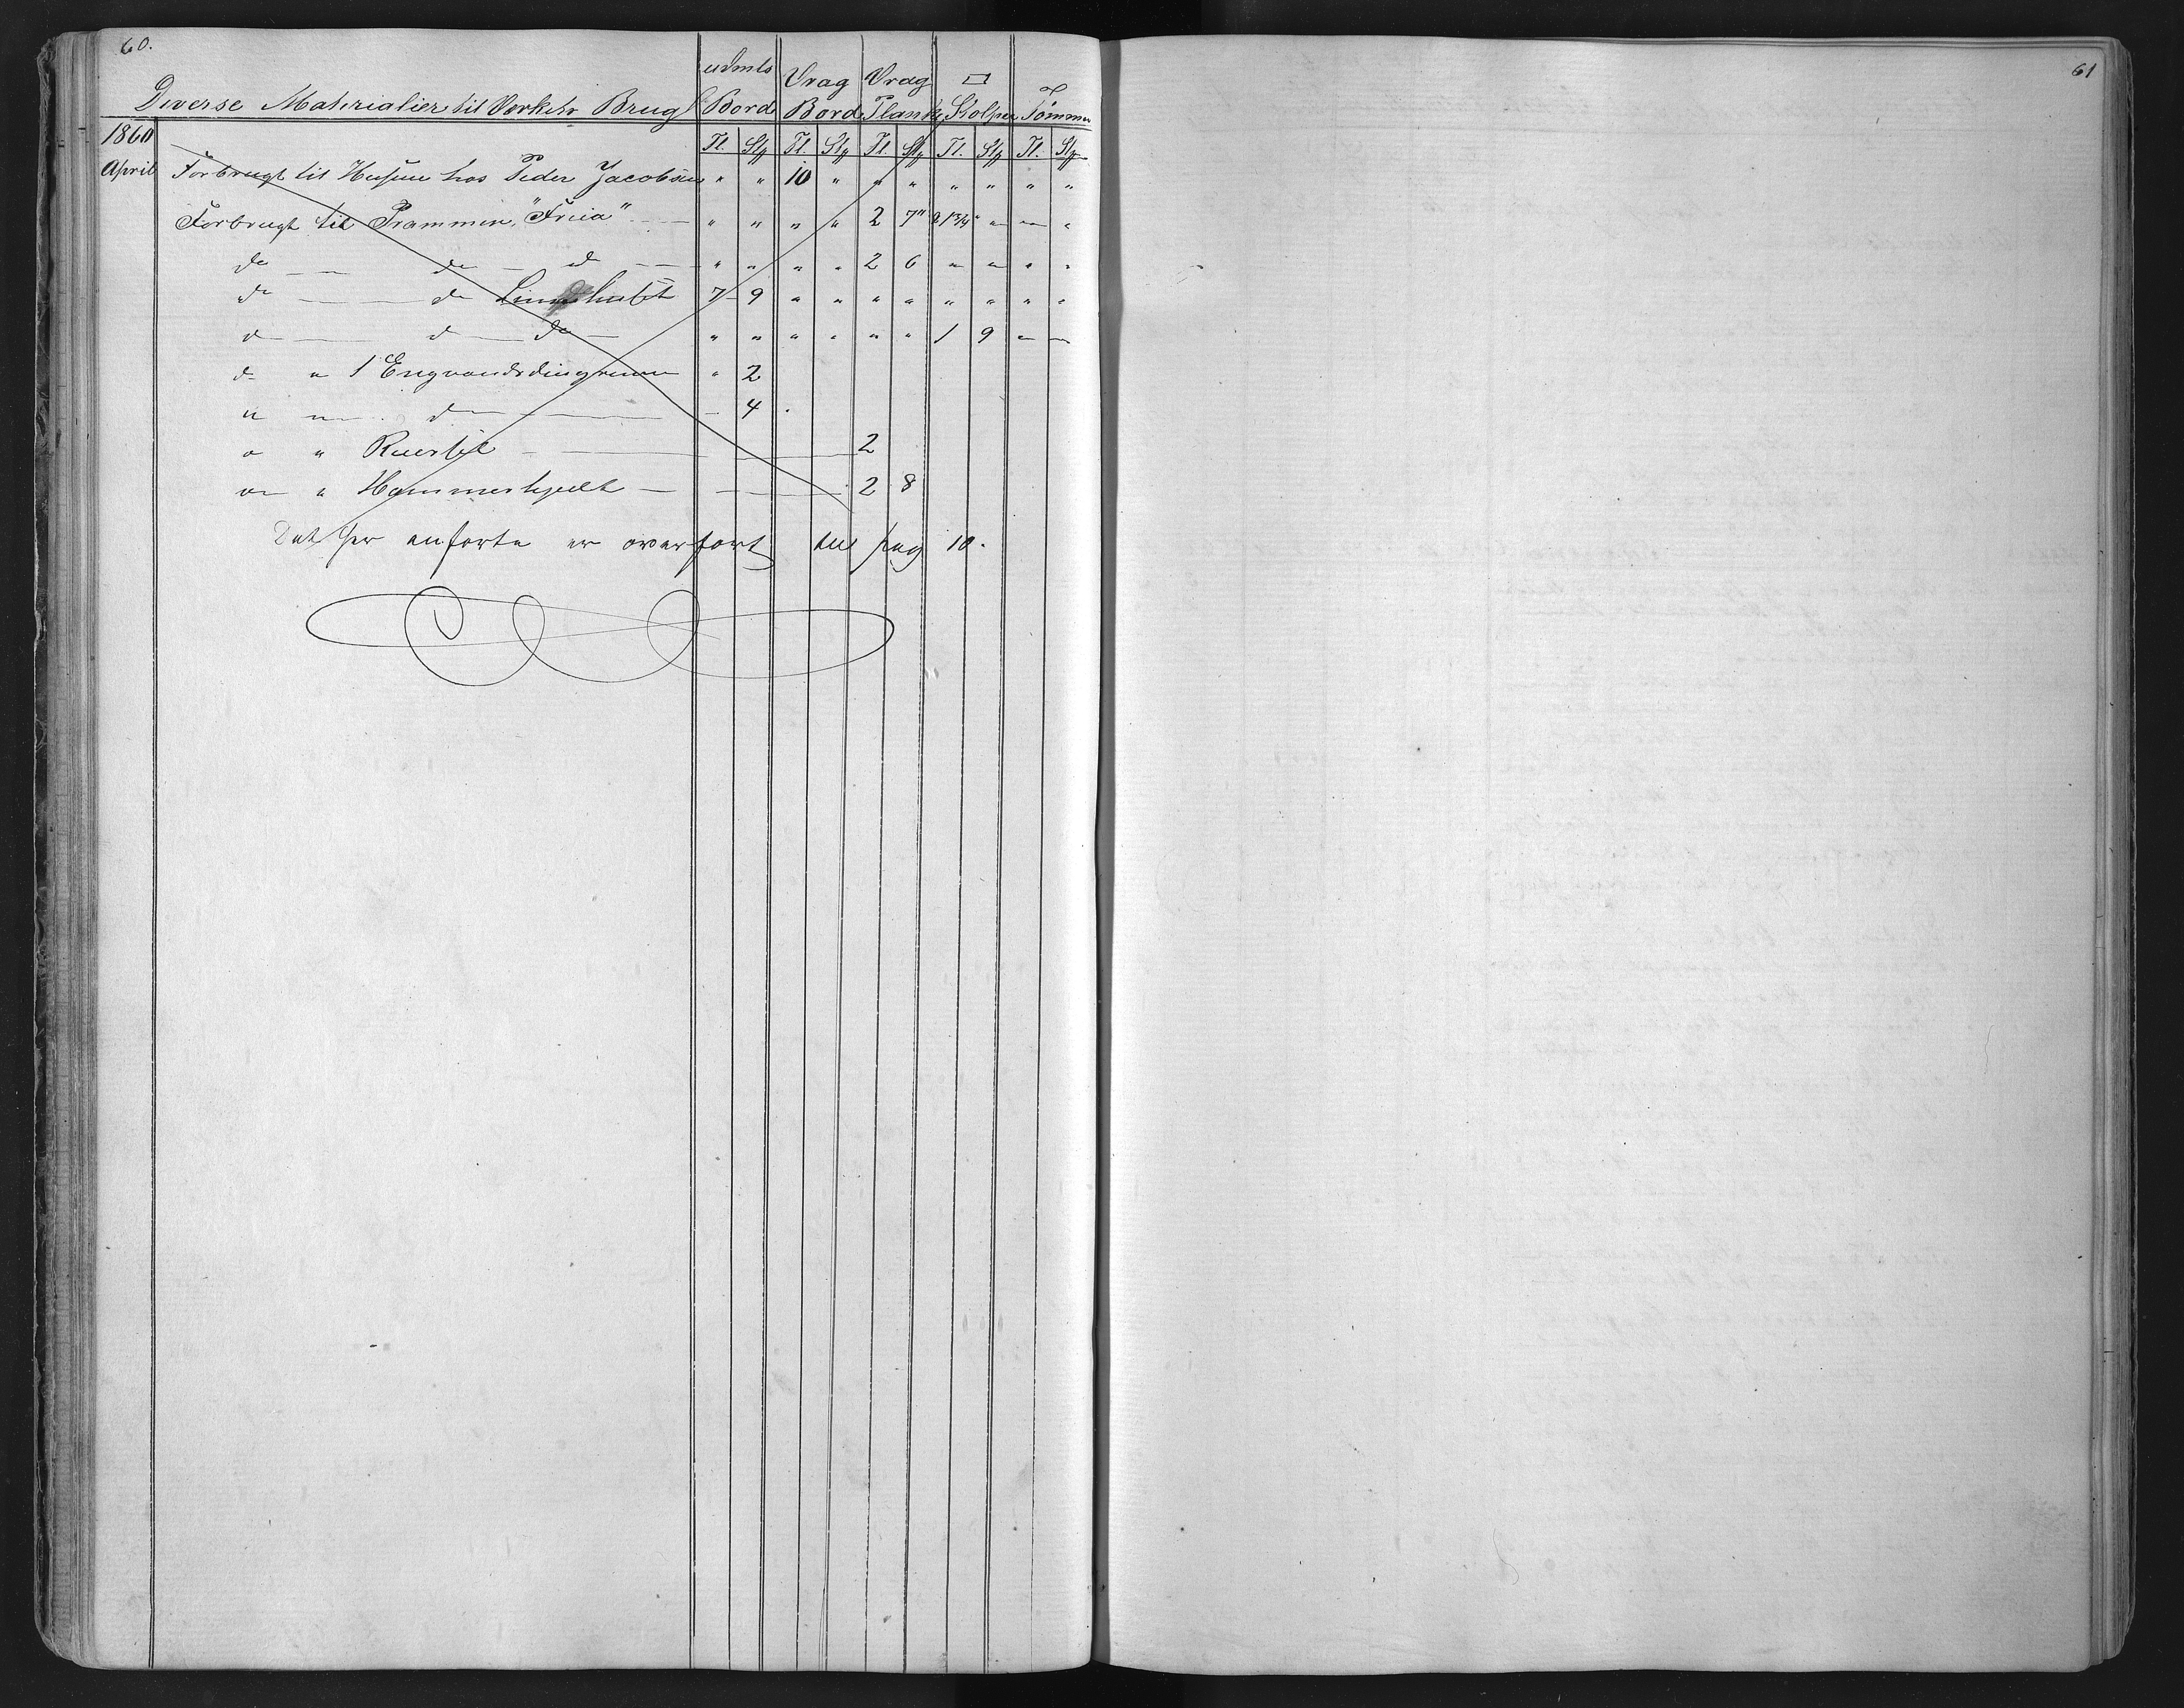 60.
61
Diverse Materialier til Værkets Brug
Bord Vrag Bord Vrag Plank □ Stolper Tømmer
1860 Tl. Stk Tl. Stk Tl. Stk Tl. Stk Tl. Stk
April Forbrugt til Husene hos Peder Jacobsen " " 10 " " " " " " "
Forbrugt til Prammen "Freia" " " " " 2 7" " "
do do do " " " " 2 6 " " " "
do do 7 9 " " " " " " " "
do do do " " " " " " 1 9 " "
do " 1 " 2
" " do 4
" " 2
" " 2 8
Det her anførte er overført til pag 10.